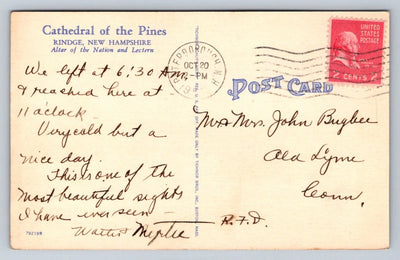 Cathedral of the Pines
RINDGE, NEW HAMPSHIRE
Altar of the Nation and Lectern
We left at 6:30 AM
& reached here at
11 o'clock.
Very cold but a
nice day.
This is one of the
most beautiful sights
I have ever seen —
Myrtie
PETERBOROUGH, N.H.
OCT 20
12-PM
UNITED
STATES
POSTAGE
2 CENTS 2
POST CARD
Mr & Mrs. John Bugbee
Old Lyme
Conn.
R.F.D.